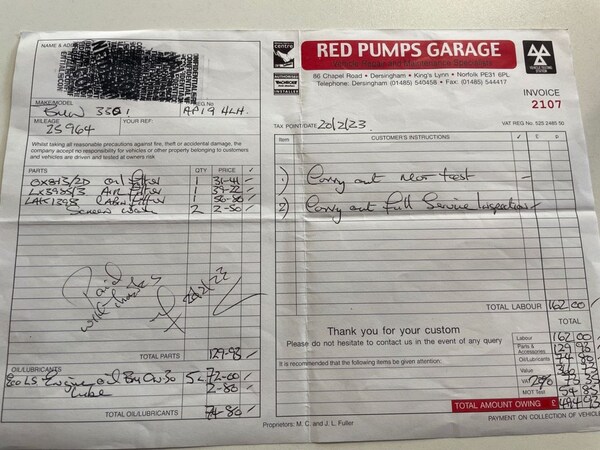 NAME & ADDRESS
centre
RED PUMPS GARAGE
86 Chapel Road • Dersingham • King's Lynn • Norfolk PE31 6PL
Telephone: Dersingham (01485) 540458 • Fax: (01485) 544417
AUTHORISED
INSTALLER
INVOICE
2107
MAKE/MODEL
BMW
REG.No
AP19 4LH.
MILEAGE
25964
YOUR REF:
TAX POINT/DATE 20/2/23
VAT REG No. 525 2485 50
Whilst taking all reasonable precautions against fire, theft or accidental damage, the
company accept no responsibility for vehicles or other property belonging to customers
and vehicles are driven and tested at owners risk
PARTS QTY PRICE ✓
Oil filter 1 ✓
Air filter 1 39-22 ✓
Cabin filter 1 ✓
Screen wash 2 2-50 ✓
Paid
with thanks
TOTAL PARTS 129-98 ✓
OIL/LUBRICANTS
Engine oil 5L 72-00 ✓
Lube 2-80 ✓
TOTAL OIL/LUBRICANTS 74-80 ✓
Item CUSTOMER'S INSTRUCTIONS ✓ £ p
1) Carry out MOT test –
2) Carry out full Service Inspection
TOTAL LABOUR 162 00 ✓
Thank you for your custom
Please do not hesitate to contact us in the event of any query
It is recommended that the following items be given attention:
TOTAL
Labour 162 00
Parts & Accessories 129 98
Oil/Lubricants 74 80
Value
VAT 20%
MOT Test 54 85
TOTAL AMOUNT OWING £ 494 93
PAYMENT ON COLLECTION OF VEHICLE
Proprietors: M. C. and J. L. Fuller